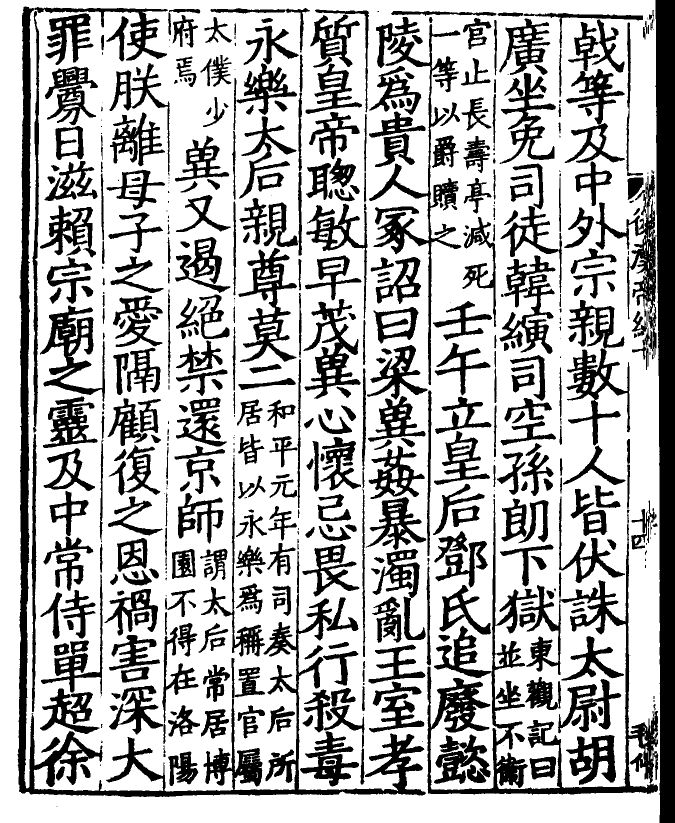 戟等及中外宗親數十人皆伏誅太尉胡
廣坐免司徒韓縯司空孫朗下獄東觀記曰並坐不衛
宮止長壽亭減死一等以爵贖之壬午立皇后鄧氏追廢懿
陵為貴人冢詔曰梁兾姦暴濁亂王室孝
質皇帝聦敏早茂兾心懷忌畏私行殺毒
永樂太后親尊莫二和平元年有司奏太后所居皆以永樂為稱置官屬
太僕少府焉兾又遏絕禁還京師謂太后常居博園不得在洛陽
使朕離母子之愛隔顧復之恩禍害深大
罪釁日滋賴宗廟之靈及中常侍單超徐
十四